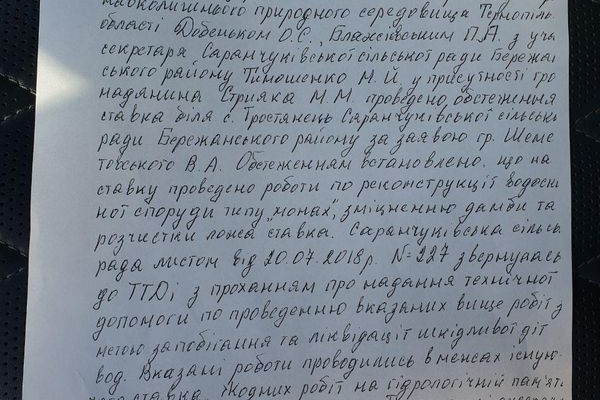 навколишнього природного середовища Терnопіль
області Добеньком О.С., Блажієвським П.А. з уча
секретаря Саранчуківської сільської ради Бережан
ського району Тимошенко М.Й. у присутності гро
мадянина Стрияка М.М. проведено обстеження
ставка біля с. Тростянець Саранчуківської сільсь
ради Бережанського району за заявою гр. Шеме
товського В.А. Обстеженням встановлено, що на
ставку проведено роботи по реконструкції водоски
ної споруди типу „монах", зміцненню дамби та
розчистки ложа ставка. Саранчуківська сільсь
рада листом від 20.07.2018р. №227 звернулась
до ТТДі з проханням про надання технічної
допомоги по проведенню вказаних вище робіт з
метою запобігання та ліквідації шкідливої дії
вод. Вказані роботи проводились в межах існую-
ставка, жодних робіт на гідрологічній пам'ят